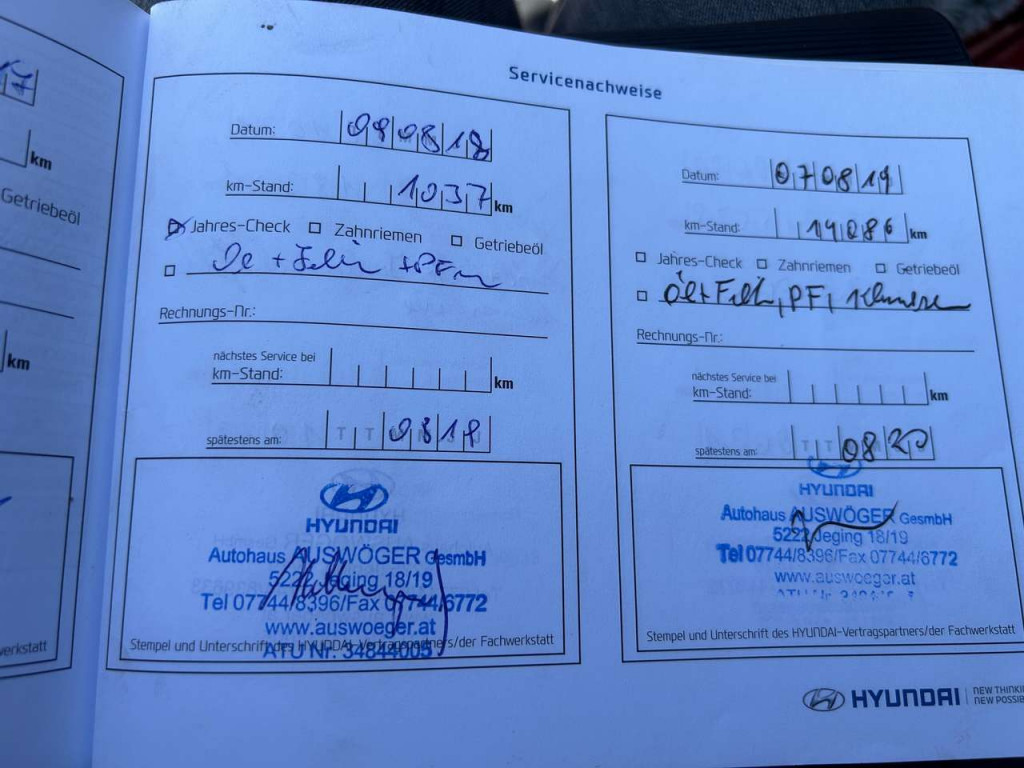 17
km
Getriebeöl
km
erkstatt
Servicenachweise
Datum: 090818
km-Stand: 1037 km
Jahres-Check Zahnriemen Getriebeöl
Rechnungs-Nr.:
nächstes Service bei
km-Stand: km
spätestens am: 0819
HYUNDAI
Autohaus AUSWÖGER GesmbH
5222 Jeging 18/19
Tel 07744/8396/Fax 07744/6772
www.auswoeger.at
Stempel und Unterschrift des HYUNDAI-Vertragspartners/der Fachwerkstatt
ATU Nr. 34844005
Datum: 070819
km-Stand: 14086 km
Jahres-Check Zahnriemen Getriebeöl
Öl+Filter, PFI,
Rechnungs-Nr.:
nächstes Service bei
km-Stand: km
spätestens am: 0820
HYUNDAI
Autohaus AUSWÖGER GesmbH
5222 Jeging 18/19
Tel 07744/8396/Fax 07744/6772
www.auswoeger.at
Stempel und Unterschrift des HYUNDAI-Vertragspartners/der Fachwerkstatt
HYUNDAI NEW THINKI
NEW POSSIB